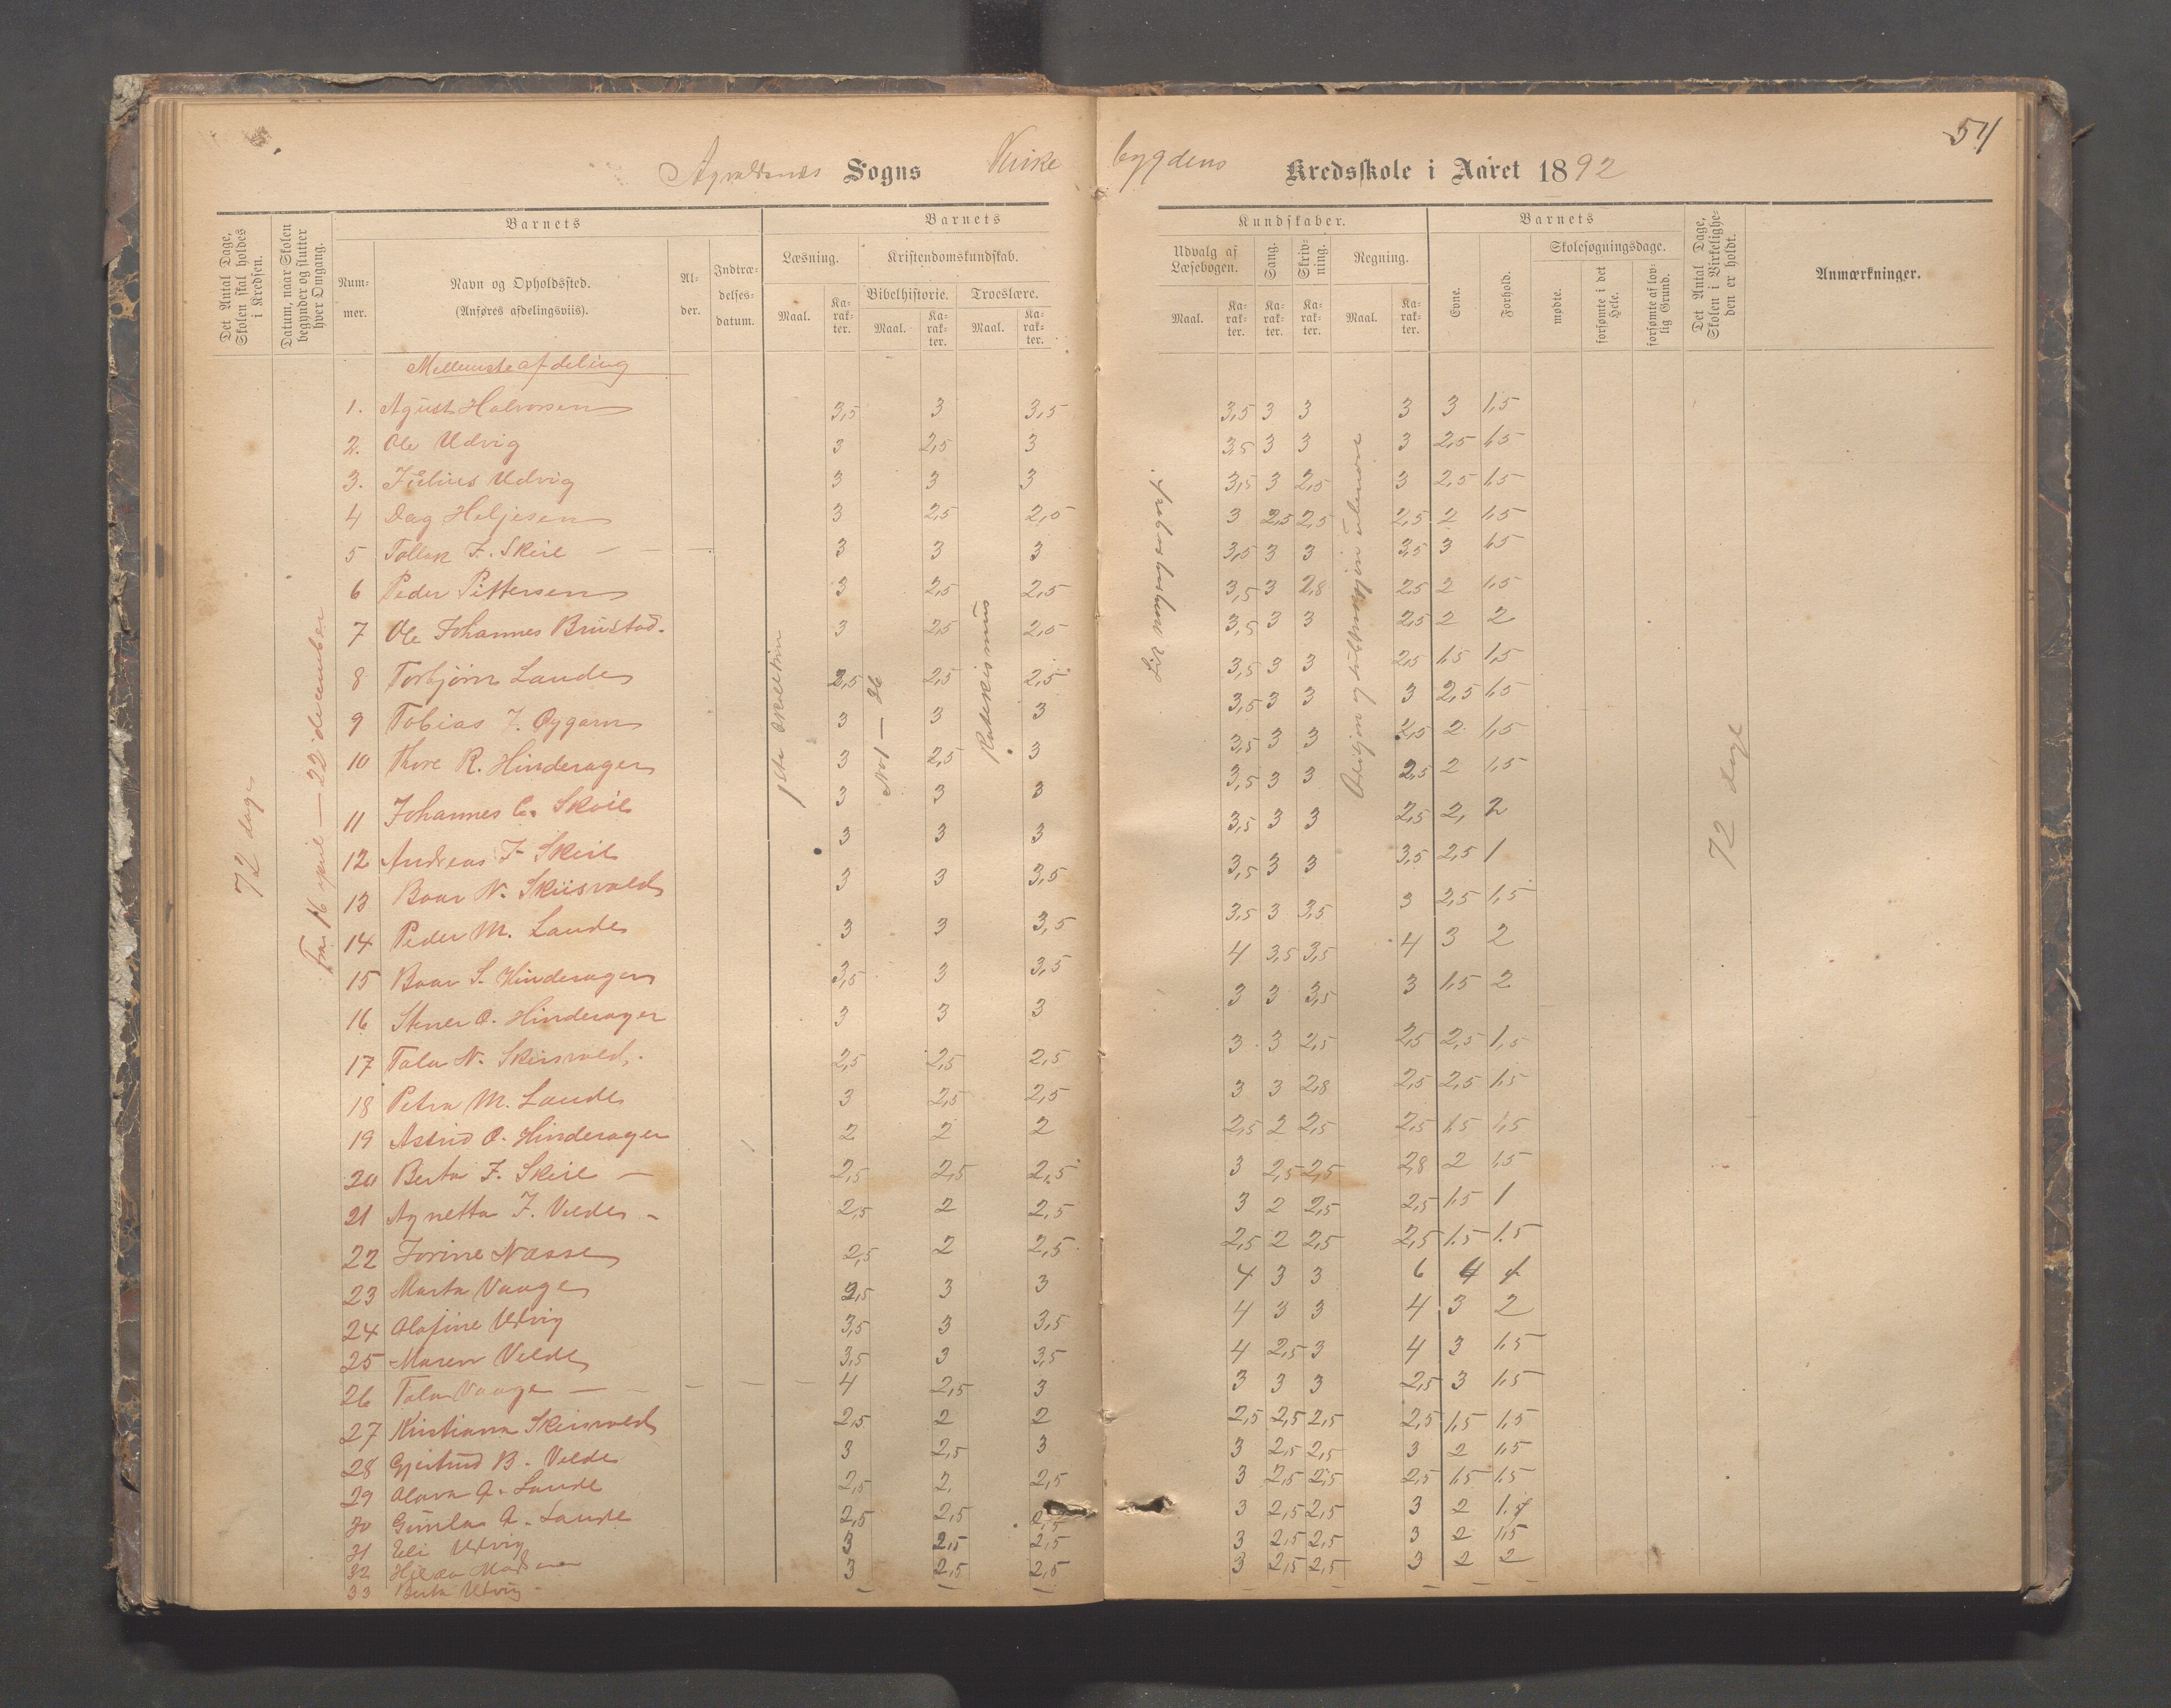 54
Sogns Kirke bygdens Kredsskole i Aaret 1892
Det Antal Dage, Skolen skal holdes i Kredsen.
Datum, naar Skolen begynder og slutter hver Omgang.
Barnets
Num-mer.
Navn og Opholdssted.
(Anføres afdelingsviis).
Al-der.
Indtræ-delses-datum.
Barnets
Kundskaber.
Læsning.
Kristendomskundskab.
Bibelhistorie.
Troeslære.
Maal.
Ka-rak-ter.
Maal.
Ka-rak-ter.
Maal.
Ka-rak-ter.
Udvalg af Læsebogen.
Sang.
Skriv-ning.
Regning.
Maal.
Ka-rak-ter.
Ka-rak-ter.
Ka-rak-ter.
Maal.
Ka-rak-ter.
Barnets
Evne.
Forhold.
Skolesøgningsdage.
mødte.
forsømte i det Hele.
forsømte af lov-lig Grund.
Det Antal Dage, Skolen i Virkelighe-den er holdt.
Anmærkninger.
Mellemste afdeling
72 dage
Fra 16 – 22 december
No 1 – 26
Katekismus
72 dage
1. Agust Halvorsen 3,5 3 3,5 3,5 3 3 3 3 1,5
2. Ole Udvig 3 2,5 3 3,5 3 3 3 2,5 1,5
3. Julius Udvig 3 3 3 3,5 3 2,5 3 2,5 1,5
4 Dag Heljesen 3 2,5 2,5 3 2,5 2,5 2,5 2 1,5
5 Tollak F. Skeie — — — 3 3 3 3,5 3 3 3,5 3 1,5
6 Peder Pittersen 3 2,5 2,5 3,5 3 2,8 2,5 2 1,5
7 Ole Johannes Brustad. 3 2,5 2,5 3,5 3 3 2,5 2 2
8 Torbjørn Lande 2,5 2,5 2,5 3,5 3 3 2,5 1,5 1,5
9 Tobias 3 3 3 3,5 3 3 3 2,5 1,5
10 Thore R. Hinderager 3 2,5 3 3,5 3 3 2,5 2 1,5
11 Johannes C. Skeie 3 3 3 3,5 3 3 2,5 2 1,5
12 Andreas F. Skeie 3 3 3 3,5 3 3 2,5 2, 2
13 Baar N. 3 3 3,5 3,5 3 3 3,5 2,5 1
14 Peder M. Lande 3 3 3,5 3,5 3 3,5 3 2,5 1,5
15 Baar S. Hinderager 3,5 3 3,5 4 3,5 3,5 4 3 2
16 O. Hinderager 3 3 3 3 3 3,5 3 1,5 2
17 Tala N. 2,5 2,5 2,5 3 3 2,5 2,5 2,5 1,5
18 Petra M. Lande 3 2,5 2,5 3 3 2,8 2,5 2,5 1,5
19 Astrid O. Hinderager 2 2 2 2,5 2 2,5 2,5 1,5 1,5
20 Berta F. Skeie — 2,5 2,5 2,5 3 2,5 2,5 2,8 2 1,5
21 Agnetta F. Velde - 2,5 2 2,5 3 2 2,5 2,5 1,5 1
22 Jorine Næsse 2,5 2 2,5 2,5 2 2,5 2,5 1.5 1.5
23 Marta Vaage 2,5 3 3 4 3 3 6 4
24 Olafine Udvig 3,5 3 3,5 4 3 3 4 3 2
25 Maren Velde 3,5 3 3,5 4 2,5 3 4 3 1,5
26 Tala Vaage — — — — — 4 2,5 3 3 3 3 2,5 3 1,5
27 Kristiana 2,5 2 2 2,5 2,5 2,5 2,5 1,5 1,5
28 Gjertrud B. Velde 3 2,5 3 3 2,5 2,5 3 2 1,5
29 Olava A. Lande 2,5 2, 2,5 3 2,5 2,5 2,5 1,5 1,5
30 Gunla A. Lande 2,5 2,5 2,5 3 2,5 2,5 3 2
31 Eli Udvig 3 2,5 2,5 3 2,5 2,5 3 2 1,5
32 3 2,5 2,5 3 2,5 2,5 3 2 2
33 Berta Udvig - — — — — — — — — —